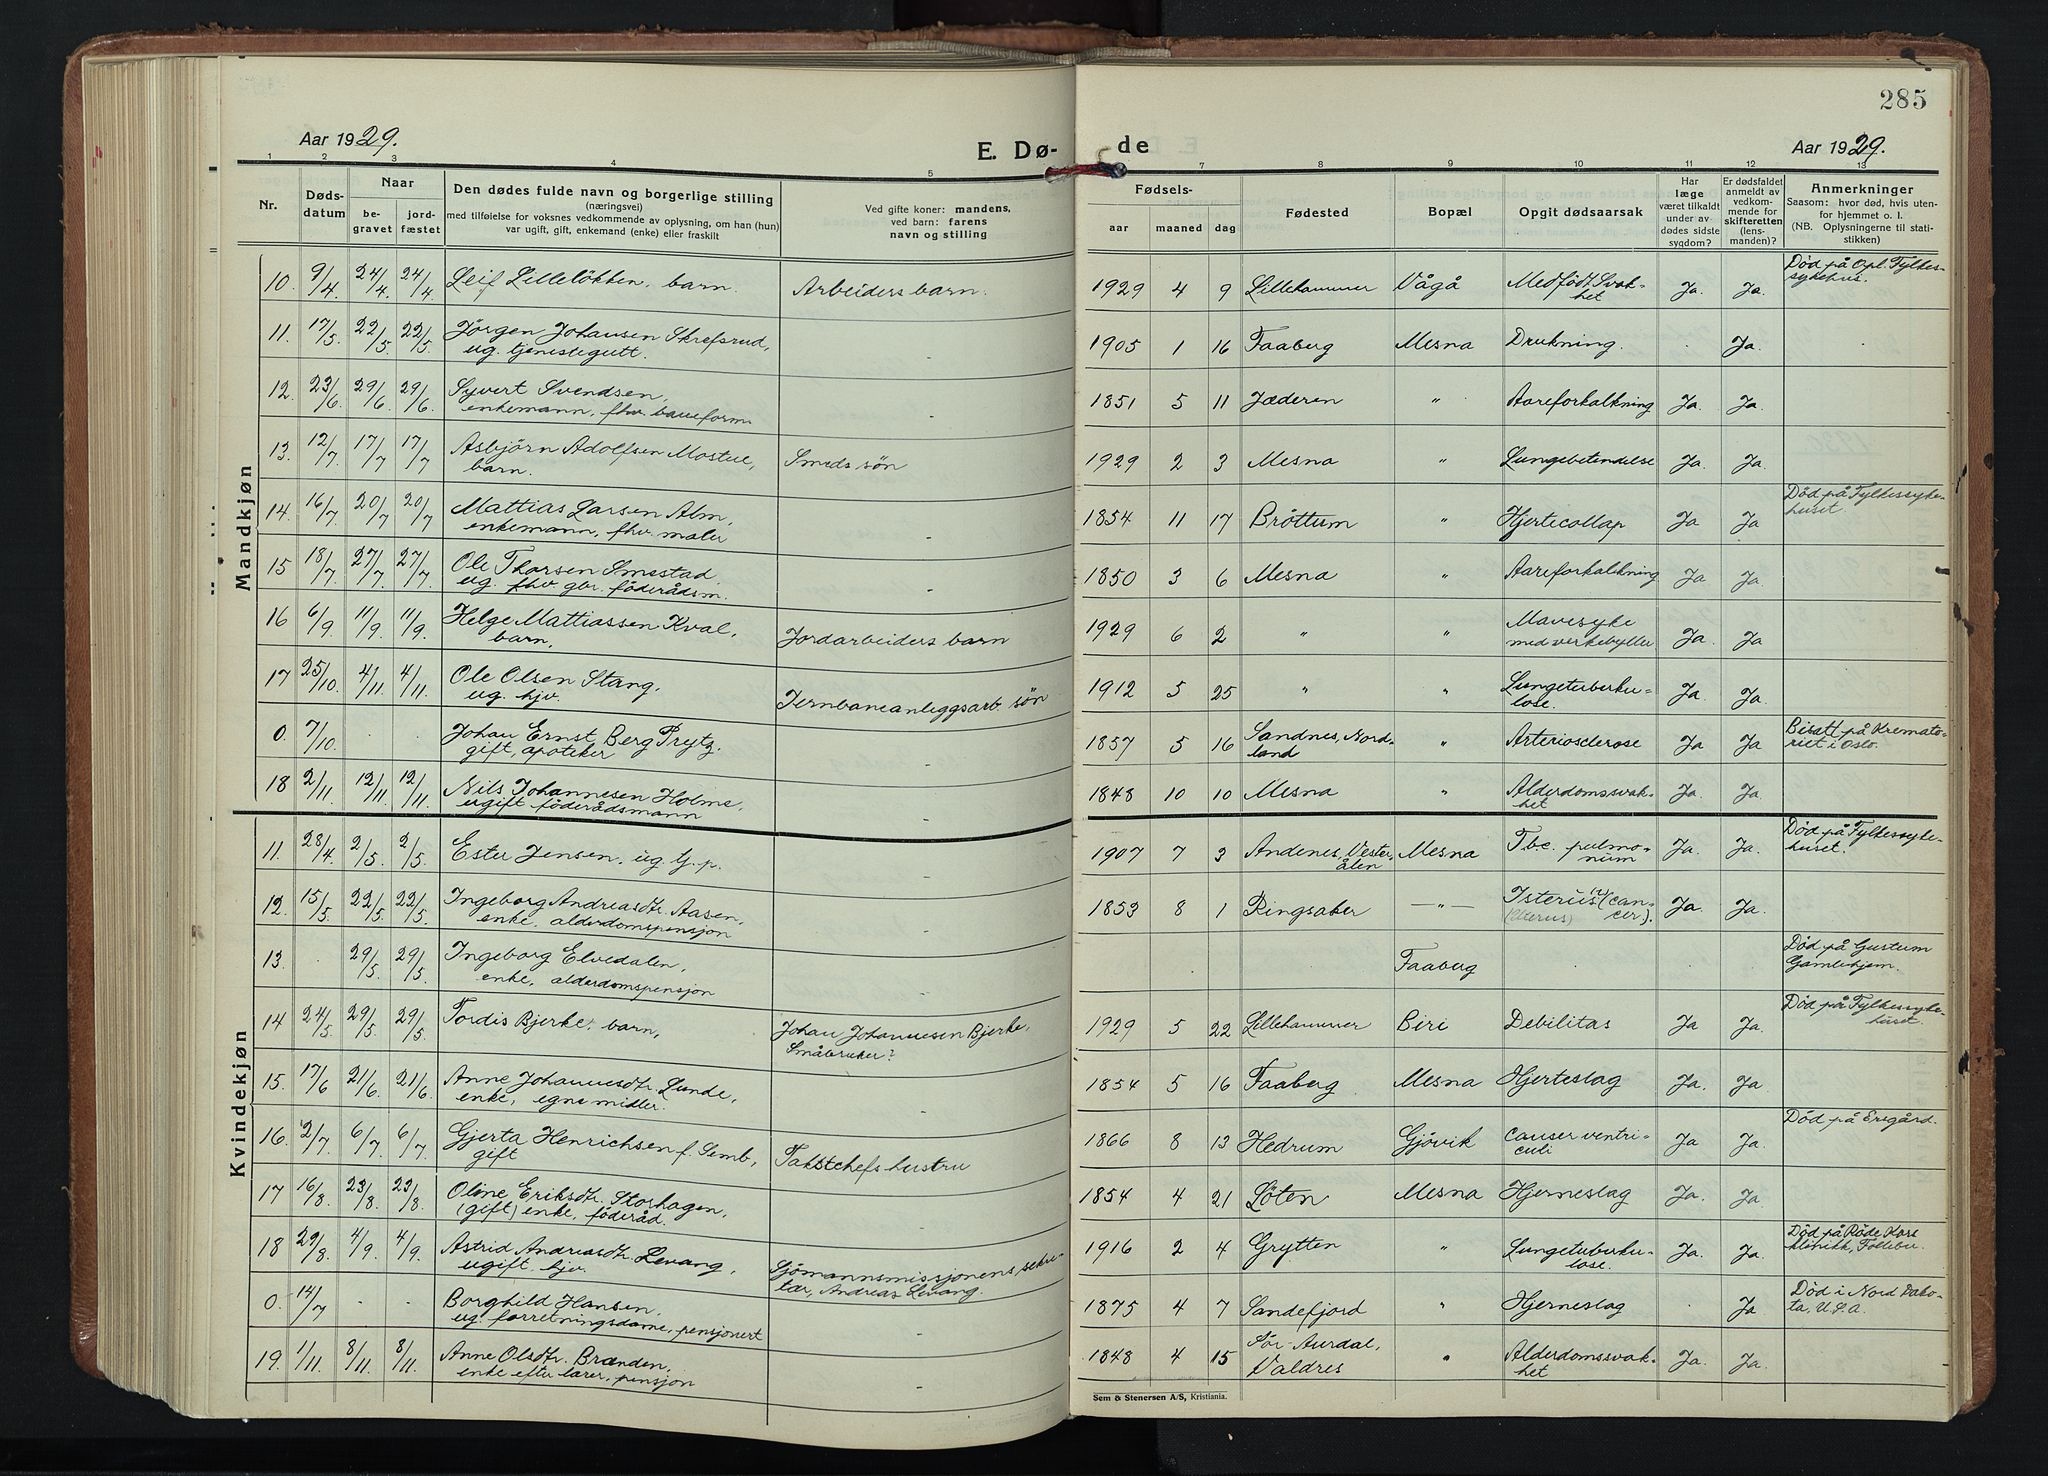 285
Aar 1929.
E. Dø-
de
Aar 1929.
1 2 3 4 5 7 8 9 10 11 12 13
Nr.
Døds-
datum
Naar
be-
gravet
jord-
fæstet
Den dødes fulde navn og borgerlige stilling
(næringsvei)
med tilføielse for voksnes vedkommende av oplysning, om han (hun)
var ugift, gift, enkemand (enke) eller fraskilt
Ved gifte koner: mandens,
ved barn: farens
navn og stilling
Fødsels-
aar maaned dag
Fødested
Bopæl
Opgit dødsaarsak
Har
læge
været tilkaldt
under av-
dødes sidste
sygdom?
Er dødsfaldet
anmeldt av
vedkom-
mende for
skifteretten
(lens-
manden)?
Anmerkninger
Saasom: hvor død, hvis uten-
for hjemmet o. l.
(NB. Oplysningerne til stati-
stikken)
Mandkjøn
10 9/4 24/4 24/4 Leif Lilleløkken, barn. Arbeiders barn. 1929 4 9 Lillehammer Vågå Medfødt Svak-
het Ja. Ja. Død på Opl. Fylkes-
sykehus.
11. 17/5 22/5 22/5 Jørgen Johansen Skrefsrud,
ug. tjenestegutt. - 1905 1 16 Faaberg Mesna Drukning. . Ja. .
12. 23/6 29/6 29/6. Syvert Svendsen,
enkemann, fhv. baneform. - 1851 5 11 Jæderen " Aareforkalkning Ja. Ja.
13. 12/7 17/7 17/7 Asbjørn Adolfsen Mostue,
barn. Smeds søn 1929 2 3 Mesna " Lungebetendelse Ja. Ja.
14. 16/7 20/7 20/7 Mattias Larsen Alm,
enkemann, fhv. maler - 1854 11 17 Brøttum " Hjertecollap Ja Ja Død på Fylkessyke-
huset
15 18/7 27/7 27/7 Ole Thorsen Smestad.
ug. fhv. gbr. føderådsm. - 1850 3 6 Mesna " Aareforkalkning Ja Ja.
16 6/9 11/9. 11/9. Helge Mattiassen Kval,
barn, Jordarbeiders barn 1929 6 2 " " Mavesyke
med verkebyller Ja. Ja
17 25/10. 4/11 4/11. Ole Olsen Stang,
ug. hjv. Jernbaneanleggsarb. søn 1912 5 25 " " Lungetuberku-
lose. Ja Ja.
0. 7/10. . . Johan Ernst Berg Prytz.
gift, apoteker - 1857 5 16 Sandnes, Nord-
land " Arteriosclerose Ja Ja Bisatt på Kremato-
riet i Oslo.
18 2/11. 12/11 12/11. Nils Johannesen Holme,
ugift føderådsmann - 1848 10 10 Mesna " Alderdomssvak-
het Ja. Ja.
Kvindekjøn
11. 28/4 2/5. 2/5. Ester Jensen, ug. G.p. - 1907 7 3 Andenes, Vester-
ålen Mesna Tbc. pulmo-
num Ja. Ja. Død på Fylkessyke-
huset.
12. 15/5. 22/5 22/5. Ingeborg Andreasdtr. Aasen,
enke, alderdomspensjon - 1853 8 1 Ringsaker -"- Isterius (?) (can-
(Icterus) cer). Ja. Ja.
13. . 29/5. 29/5. Ingeborg Elvedalen,
enke, alderdomspensjon - . Faaberg . . . Død på Gustum
Gamlehjem.
14 24/5. 29/5. 29/5. Tordis Bjerke, barn, Johan Johannesen Bjerke,
Småbruker? 1929 5 22 Lillehammer Biri Debilitas Ja Ja. Død på Fylkessyke-
huset.
15. 17/6 21/6 21/6. Anne Johannesdtr. Lunde,
enke, egne midler. - 1854 5 16 Faaberg Mesna Hjerteslag Ja. Ja
16. 2/7 6/7. 6/7 Gjerta Henrichsen f. Semb,
gift Takstchefs hustru 1866 8 13 Hedrum Gjøvik Cancer ventri-
culi Ja Ja. Død på Ersgård.
17 16/8 23/8. 23/8. Oline Eriksdtr. Storhagen,
(gift) enke, føderåd. - 1854 4 21 Løten Mesna Hjerneslag Ja. Ja.
18 29/8. 4/9. 4/9 Astrid Andreasdtr. Levang,
ugift hjv. Sjømannsmissjonens sekre-
tær, Andreas Levang. 1916 2 4 Grytten " Lungetuberku-
lose. Ja. Ja. Død på Røde Kors
klinikk, Follebu.
0. 14/7 . . Borghild Hansen,
ug. forretningsdame, pensjonert - 1875 4 7 Sandefjord " Hjerneslag . Ja Død i Nord Dako-
ta, U.S.A.
19. 1/11. 8/11 8/11. Anne Olsdtr. Brænden,
enke efter lærer, pensjon - 1848 4 15 Sør-Aurdal,
Valdres " Alderdomssvak-
het Ja. Ja.
Sem & Stenersen A/S, Kristiania.